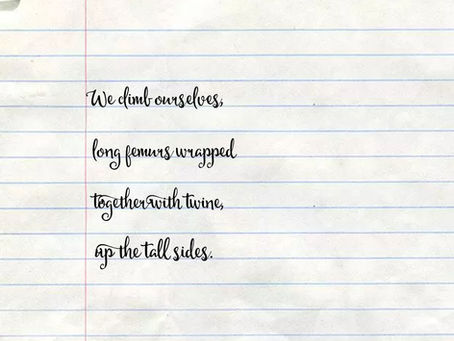 We climb ourselves,
long femurs wrapped
together with twine,
up the tall sides.